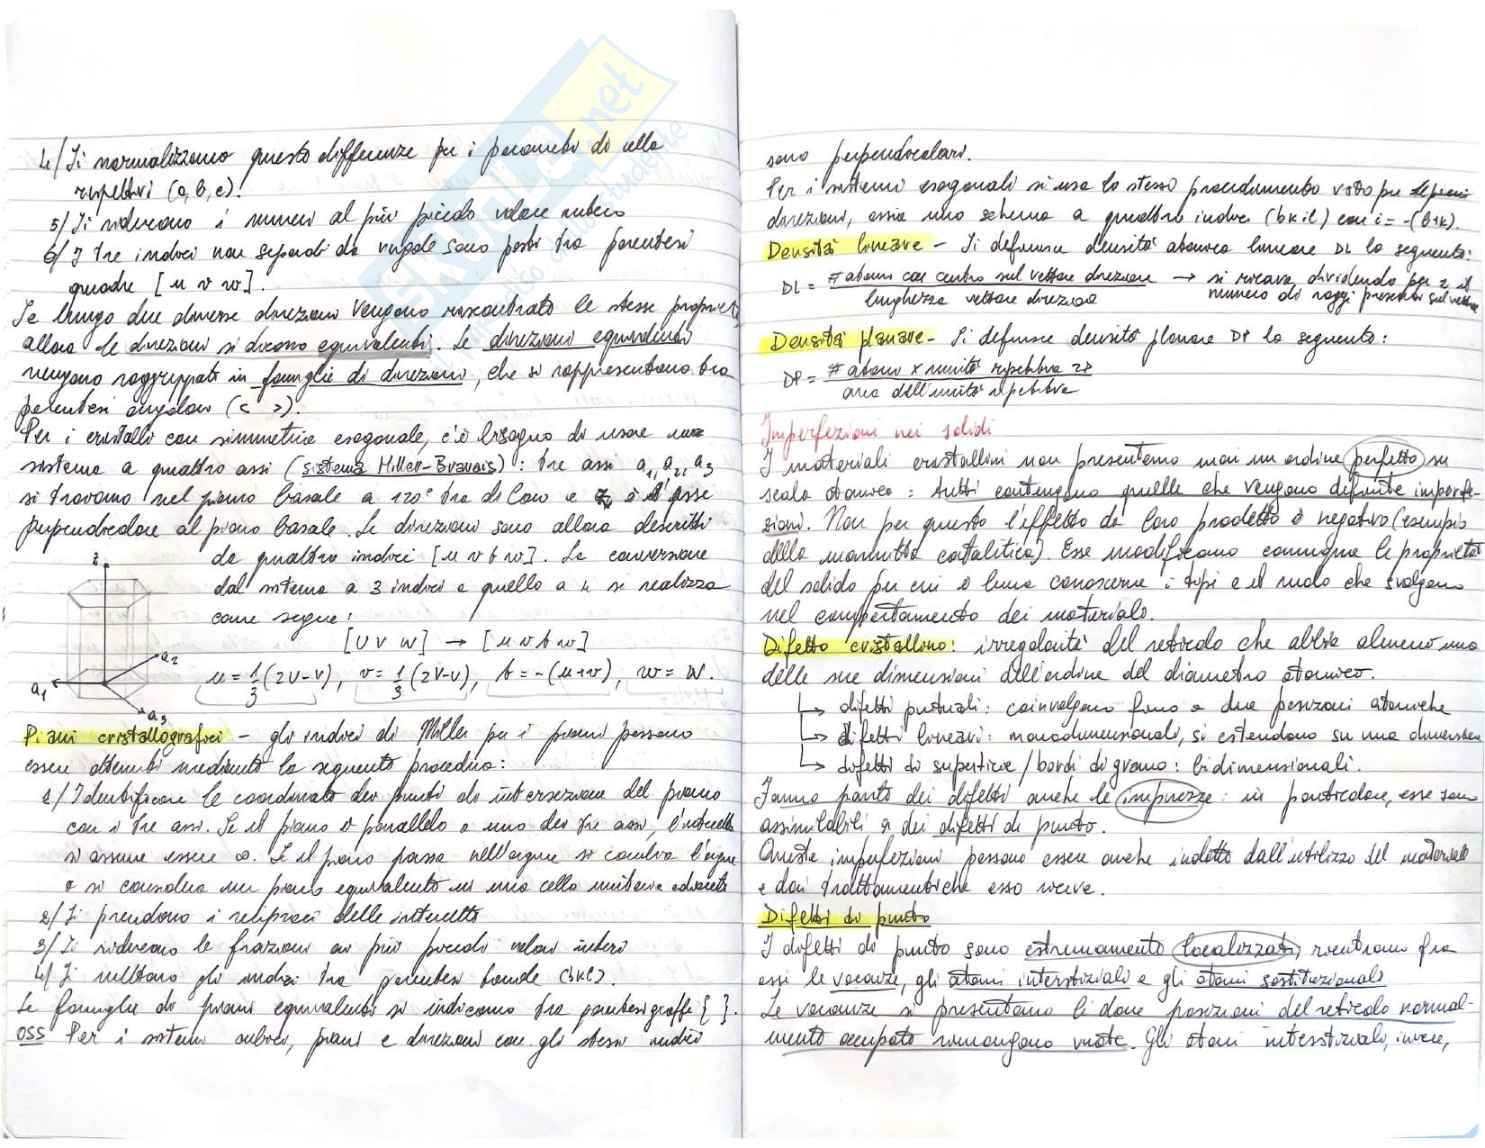 4/ Si normalizzano queste differenze per i parametri di cella
rispettivi (a, b, c).
5/ Si riducono i numeri al più piccolo valore intero
6/ I tre indici non separati da virgole sono posti tra parentesi
quadre [u v w].
Se lungo due diverse direzioni vengono riscontrate le stesse proprietà,
allora le direzioni si dicono equivalenti. Le direzioni equivalenti
vengono raggruppate in famiglie di direzioni, che si rappresentano tra
parentesi angolari (< >).
Per i cristalli con simmetria esagonale, c'è bisogno di usare un
sistema a quattro assi (sistema Miller-Bravais): tre assi a1, a2, a3
si trovano nel piano basale a 120° tra di loro e z è l'asse
perpendicolare al piano basale. Le direzioni sono allora descritte
da quattro indici [u v t w]. La conversione
dal sistema a 3 indici a quello a 4 si realizza
come segue:
[U V W] → [u v t w]
z
a1
a2
a3
u = 1/3 (2U-V), v = 1/3 (2V-U), t = -(u+v), w = W.
Piani cristallografici - gli indici di Miller per i piani possono
essere ottenuti mediante la seguente procedura:
1/ Identificare le coordinate dei punti di intersezione del piano
con i tre assi. Se il piano è parallelo a uno dei tre assi, l'intercetta
si assume essere ∞. Se il piano passa nell'origine si cambia l'origine
o si considera un piano equivalente in una cella unitaria adiacente
2/ Si prendono i reciproci delle intercette
3/ Si riducono le frazioni ai più piccoli valori interi
4/ Si mettono gli indici tra parentesi tonde (hkl).
Le famiglie di piani equivalenti si indicano tra parentesi graffe { }.
OSS Per i sistemi cubici, piani e direzioni con gli stessi indici
sono perpendicolari.
Per i sistemi esagonali si usa lo stesso procedimento visto per le
direzioni, ossia uno schema a quattro indici (hkil) con i = -(h+k).
Densità lineare - Si definisce densità atomica lineare DL la seguente:
DL = # atomi con centro sul vettore direzione / lunghezza vettore direzione → si ricava dividendo per 2 il
numero di raggi presenti sul vettore
Densità planare - Si definisce densità planare DP la seguente:
DP = # atomi x unità ripetitiva 2D / area dell'unità ripetitiva
Imperfezioni nei solidi
I materiali cristallini non presentano mai un ordine perfetto su
scala atomica: tutti contengono quelle che vengono definite imperfe-
zioni. Non per questo l'effetto da loro prodotto è negativo (esempio
della marmitta catalitica). Esse modificano comunque le proprietà
del solido per cui è bene conoscerne i tipi e il ruolo che svolgono
nel comportamento dei materiali.
Difetto cristallino: irregolarità del reticolo che abbia almeno una
delle sue dimensioni dell'ordine del diametro atomico.
↳ difetti puntuali: coinvolgono fino a due posizioni atomiche
↳ difetti lineari: monodimensionali, si estendono su una dimensione
↳ difetti di superficie / bordi di grano: bidimensionali.
Fanno parte dei difetti anche le impurezze: in particolare, esse sono
assimilabili a dei difetti di punto.
Queste imperfezioni possono essere anche indotte dall'utilizzo del materiale
e dai trattamenti che esso riceve.
Difetti di punto
I difetti di punto sono estremamente localizzati, rientrano fra
essi le vacanze, gli atomi interstiziali e gli atomi sostituzionali
Le vacanze si presentano là dove posizioni del reticolo normal-
mente occupate rimangono vuote. Gli atomi interstiziali, invece,